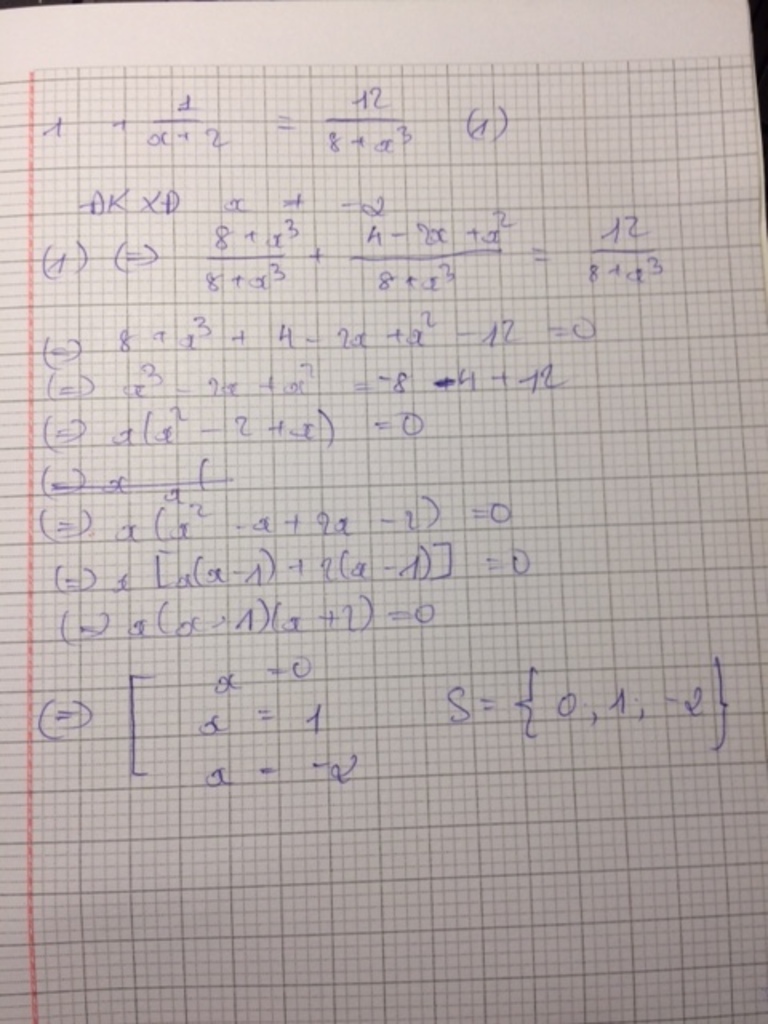 1 + 1/(x+2) = 12/(8+x³) (1)
ĐKXĐ x ≠ -2
(1) (=) (8+x³)/(8+x³) + (4-2x+x²)/(8+x³) = 12/(8+x³)
(=) 8 + x³ + 4 - 2x + x² - 12 = 0
(=) x³ - 2x + x² = -8 - 4 + 12
(=) x(x² - 2 + x) = 0
(=) x(x² - x + 2x - 2) = 0
(=) x[x(x-1) + 2(x-1)] = 0
(=) x(x-1)(x+2) = 0
(=) [ x = 0
x = 1 S = {0; 1; -2}
x = -2